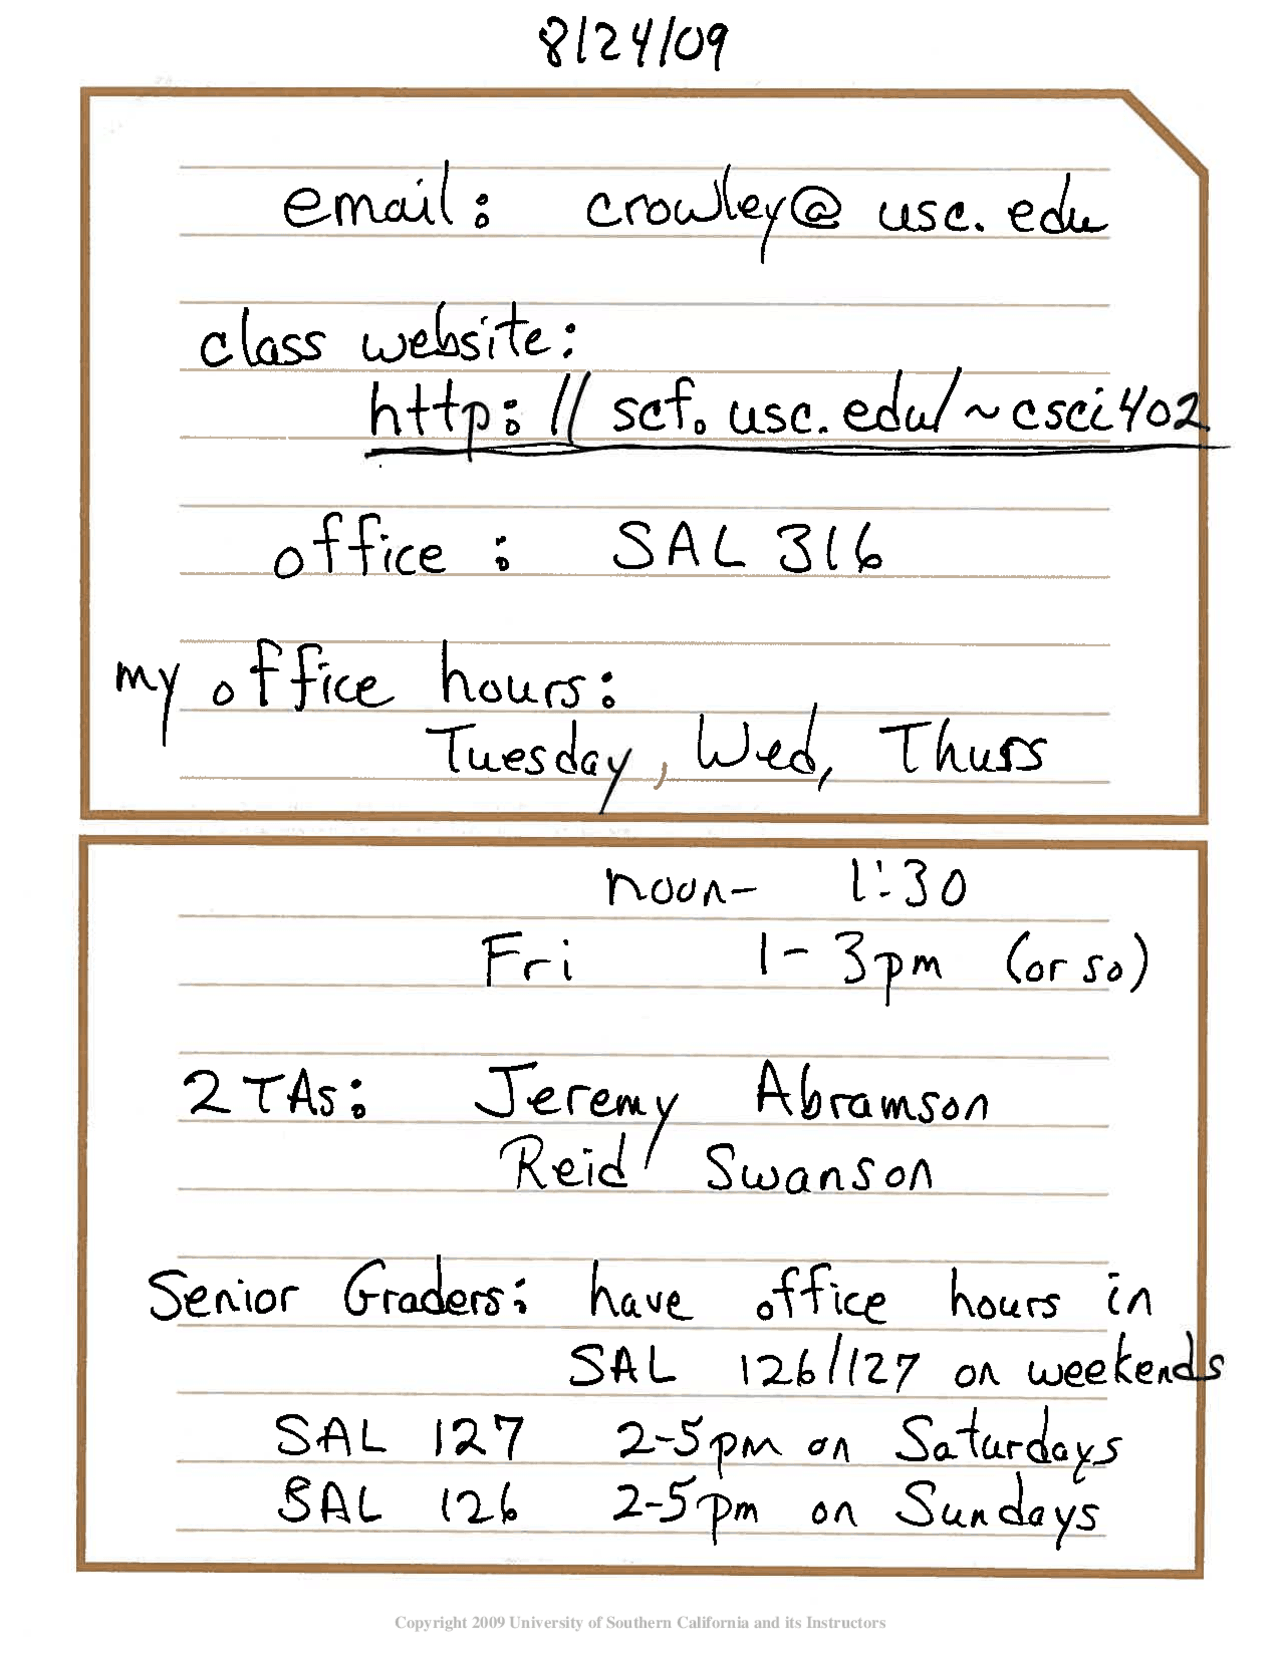 8/24/09
email: crowley@usc.edu
class website:
http://scf.usc.edu/~csci402
office: SAL 316
my office hours:
Tuesday, Wed, Thurs
noon- 1:30
Fri 1-3pm (or so)
2 TAs: Jeremy Abramson
Reid Swanson
Senior Graders: have office hours in
SAL 126/127 on weekends
SAL 127 2-5pm on Saturdays
SAL 126 2-5pm on Sundays
Copyright 2009 University of Southern California and its Instructors